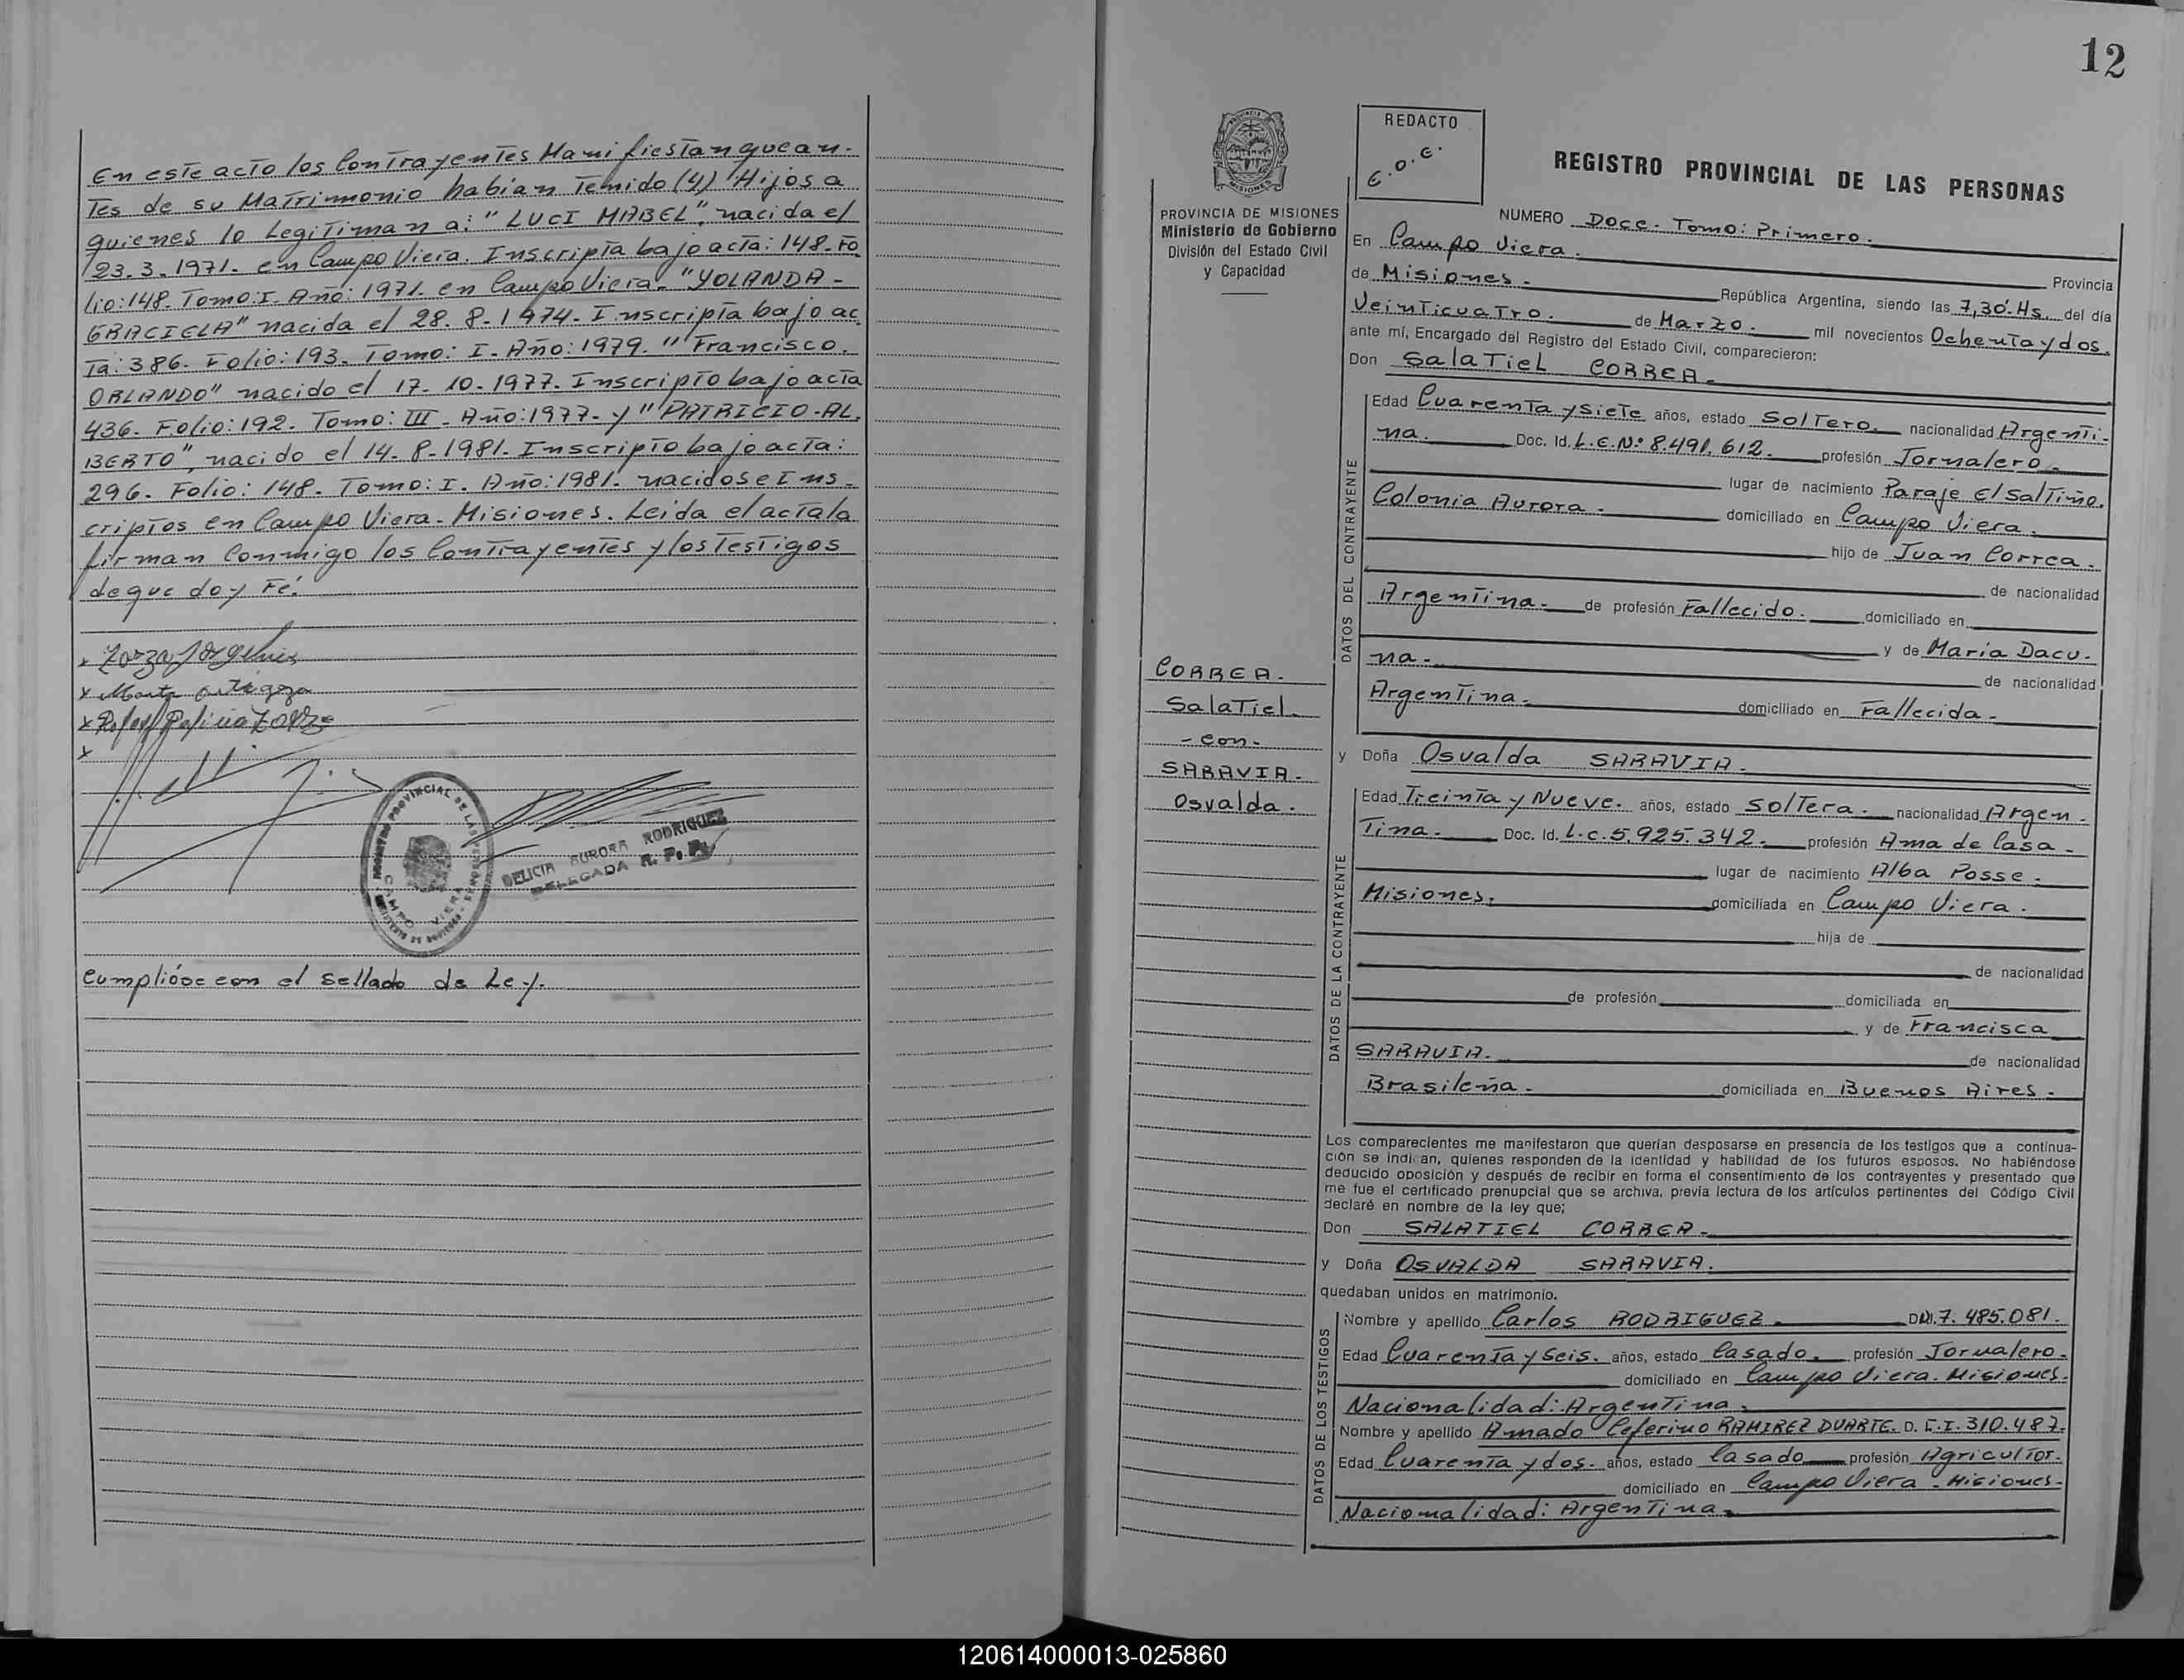 En este acto los Contrayentes Manifiestan que an-
tes de su Matrimonio habian Tenido (4) Hijos a
quienes lo Legitiman a: "LUCI MABEL", nacida el
23.3.1971. en Campo Viera. Inscripta bajo acta: 148- Fo
lio: 148- Tomo: I- Año: 1971. en Campo Viera- "YOLANDA -
GRACIELA" nacida el 28. 8-1974- Inscripta bajo ac
Ta: 386. Folio: 193. Tomo: I- Año: 1979. "Francisco.
ORLANDO" nacido el 17- 10-1977- Inscripto bajo acta
436- Folio: 192. Tomo: III - Año: 1977- y "PATRICIO-AL.
BERTO", nacido el 14. 8-1981. Inscripto bajo acta:
296. Folio: 148. Tomo: I. Año: 1981. nacidos e Ins-
criptos en Campo Viera- Misiones. Leida el acta la
firman Conmigo los Contrayentes y los Testigos
de que doy Fé.
x
x Marta
x
x
REGISTRO PROVINCIAL DE LAS PERSONAS
CAMPO VIERA
DELICIA AURORA RODRIGUEZ
DELEGADA R. P. P.
Cumplióse con el sellado de Ley.
12
PROVINCIA
MISIONES
REDACTO
E.O.E.
PROVINCIA DE MISIONES
Ministerio de Gobierno
División del Estado Civil
y Capacidad
REGISTRO PROVINCIAL DE LAS PERSONAS
NUMERO Doce. Tomo: Primero.
En Campo Viera. Provincia
de Misiones - República Argentina, siendo las 7,30.Hs. del día
Veinticuatro. de Marzo. mil novecientos Ochenta y dos.
ante mí, Encargado del Registro del Estado Civil, comparecieron:
Don Salatiel CORREA.
DATOS DEL CONTRAYENTE
Edad Cuarenta y siete años, estado Soltero. nacionalidad Argenti-
na. Doc. Id. L.E.Nº 8.491.612. profesión Jornalero-
lugar de nacimiento Paraje El Saltiño.
Colonia Aurora. domiciliado en Campo Viera.
hijo de Juan Correa.
de nacionalidad
Argentina- de profesión Fallecido. domiciliado en
y de Maria Dacu-
na- de nacionalidad
Argentina- domiciliado en Fallecida-
CORREA.
Salatiel.
- con -
SARAVIA.
Osvalda.
y Doña Osvalda SARAVIA.
DATOS DE LA CONTRAYENTE
Edad Treinta y Nueve. años, estado Soltera. nacionalidad Argen-
Tina- Doc. Id. L.C.5.925.342- profesión Ama de Casa-
lugar de nacimiento Alba Posse.
Misiones. domiciliada en Campo Viera.
hija de
de nacionalidad
de profesión domiciliada en
y de Francisca
SARAVIA. de nacionalidad
Brasileña. domiciliada en Buenos Aires-
Los comparecientes me manifestaron que querían desposarse en presencia de los testigos que a continua-
ción se indican, quienes responden de la identidad y habilidad de los futuros esposos. No habiéndose
deducido oposición y después de recibir en forma el consentimiento de los contrayentes y presentado que
me fue el certificado prenupcial que se archiva, previa lectura de los artículos pertinentes del Código Civil
declaré en nombre de la ley que;
Don SALATIEL CORREA.
y Doña OSVALDA SARAVIA.
quedaban unidos en matrimonio.
DATOS DE LOS TESTIGOS
Nombre y apellido Carlos RODRIGUEZ. DNI.7.485.081.
Edad Cuarenta y Seis. años, estado Casado. profesión Jornalero-
domiciliado en Campo Viera. Misiones.
Nacionalidad: Argentina.
Nombre y apellido Amado Ceferino RAMIREZ DUARTE. D. C.I. 310.487-
Edad Cuarenta y dos. años, estado Casado profesión Agricultor.
domiciliado en Campo Viera - Misiones-
Nacionalidad: Argentina.
120614000013-025860